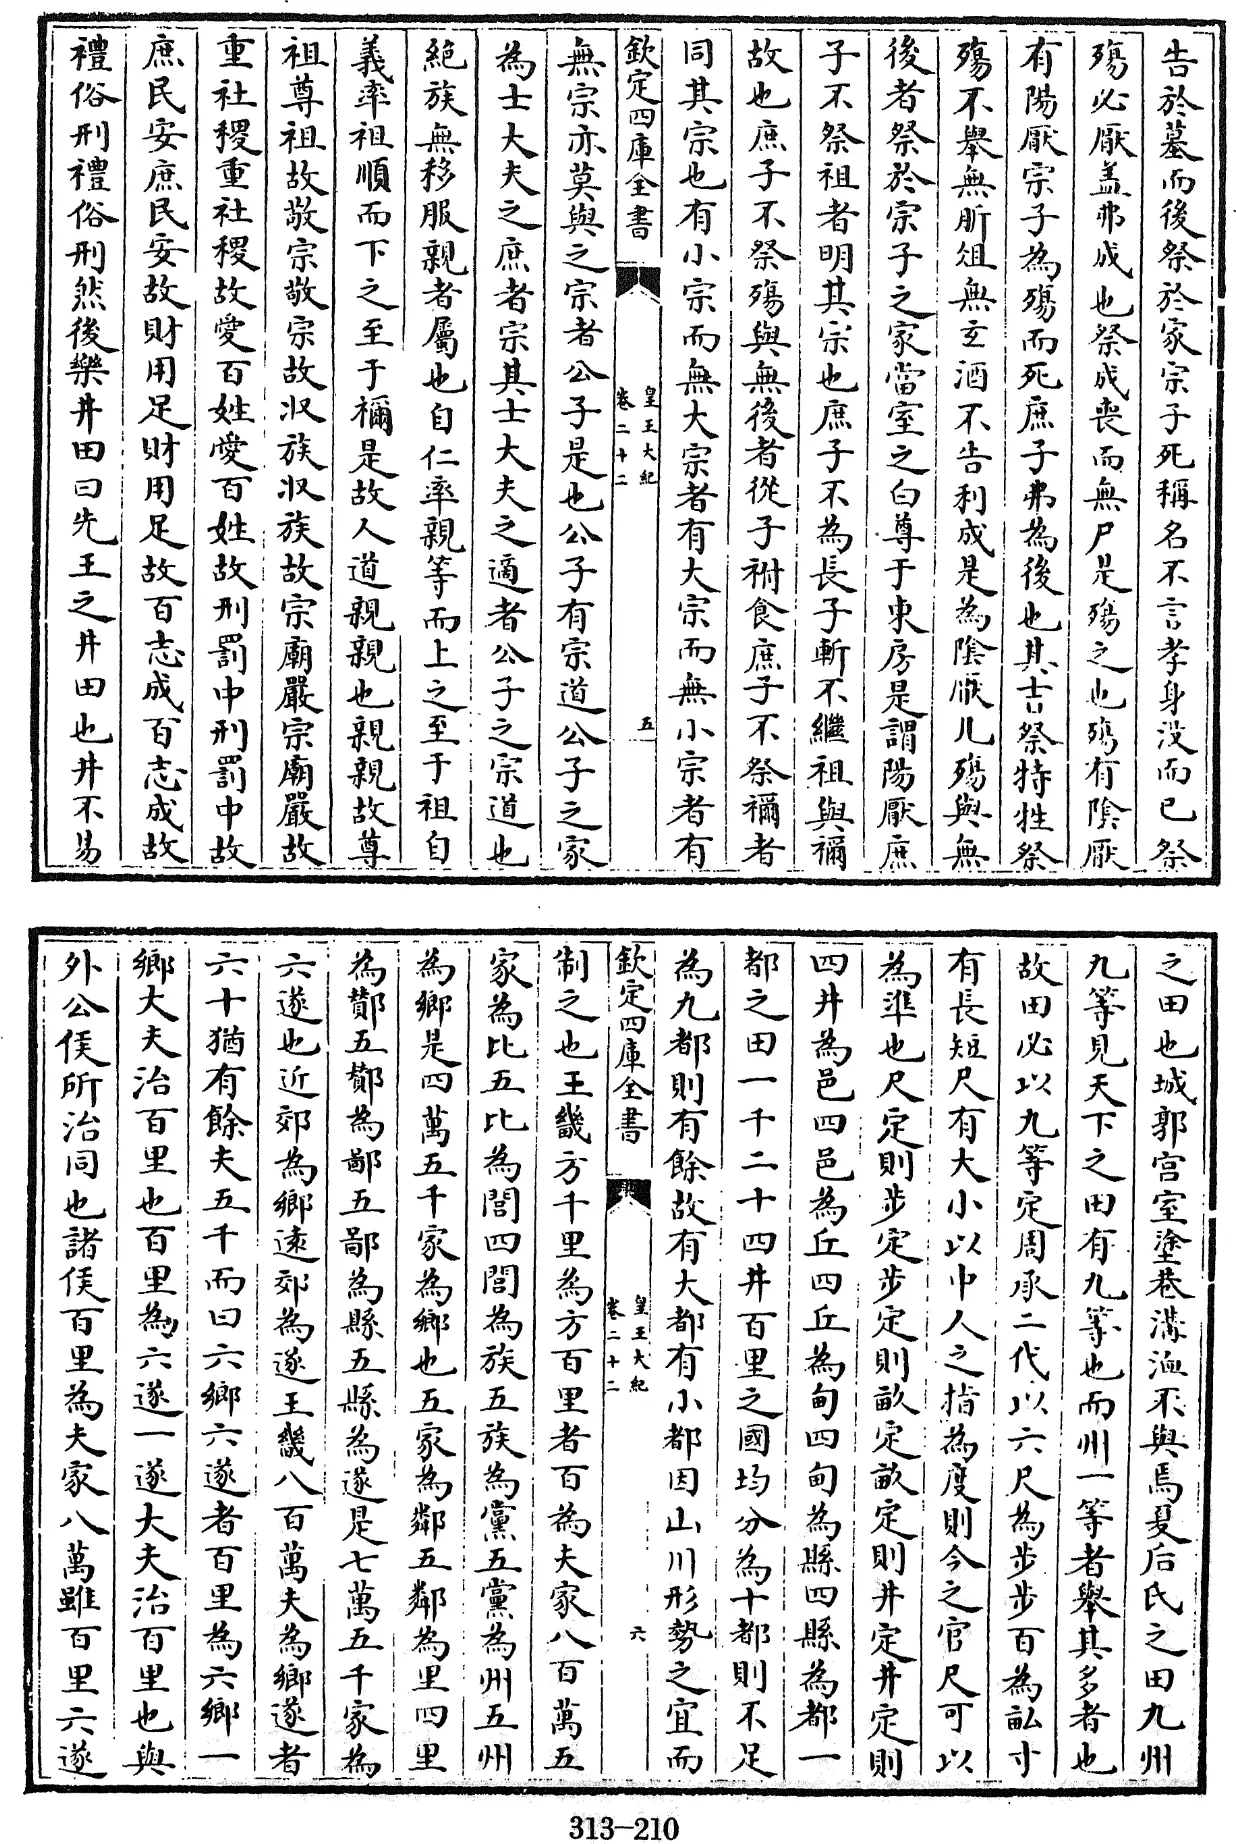 告於墓而後祭於家宗子死稱名不言孝身没而已祭
殤必厭盖弗成也祭成喪而無尸是殤之也殤有陰厭
有陽厭宗子為殤而死庶子弗為後也其吉祭特牲祭
殤不舉無肵俎無玄酒不告利成是為陰厭凡殤與無
後者祭於宗子之家當室之白尊于東房是謂陽厭庶
子不祭祖者明其宗也庶子不為長子斬不繼祖與禰
故也庶子不祭殤與無後者從子祔食庶子不祭禰者
同其宗也有小宗而無大宗者有大宗而無小宗者有
欽定四庫全書
皇王大紀
卷二十二
五
無宗亦莫與之宗者公子是也公子有宗道公子之家
為士大夫之庶者宗其士大夫之適者公子之宗道也
絶族無移服親者屬也自仁率親等而上之至于祖自
義率祖順而下之至于禰是故人道親親也親親故尊
祖尊祖故敬宗敬宗故収族収族故宗廟嚴宗廟嚴故
重社稷重社稷故愛百姓愛百姓故刑罰中刑罰中故
庶民安庶民安故財用足財用足故百志成百志成故
禮俗刑禮俗刑然後樂井田曰先王之井田也井不易
之田也城郭宫室塗巷溝洫不與焉夏后氏之田九州
九等見天下之田有九等也而州一等者舉其多者也
故田必以九等定周承二代以六尺為步步百為畝寸
有長短尺有大小以中人之指為度則今之官尺可以
為準也尺定則步定步定則畝定畝定則井定井定則
四井為邑四邑為丘四丘為甸四甸為縣四縣為都一
都之田一千二十四井百里之國均分為十都則不足
為九都則有餘故有大都有小都因山川形勢之宜而
欽定四庫全書
皇王大紀
卷二十二
六
制之也王畿方千里為方百里者百為夫家八百萬五
家為比五比為閭四閭為族五族為黨五黨為州五州
為鄉是四萬五千家為鄉也五家為鄰五鄰為里四里
為酇五酇為鄙五鄙為縣五縣為遂是七萬五千家為
六遂也近郊為鄉遠郊為遂王畿八百萬夫為鄉遂者
六十猶有餘夫五千而曰六鄉六遂者百里為六鄉一
鄉大夫治百里也百里為六遂一遂大夫治百里也與
外公侯所治同也諸侯百里為夫家八萬雖百里六遂
313-210